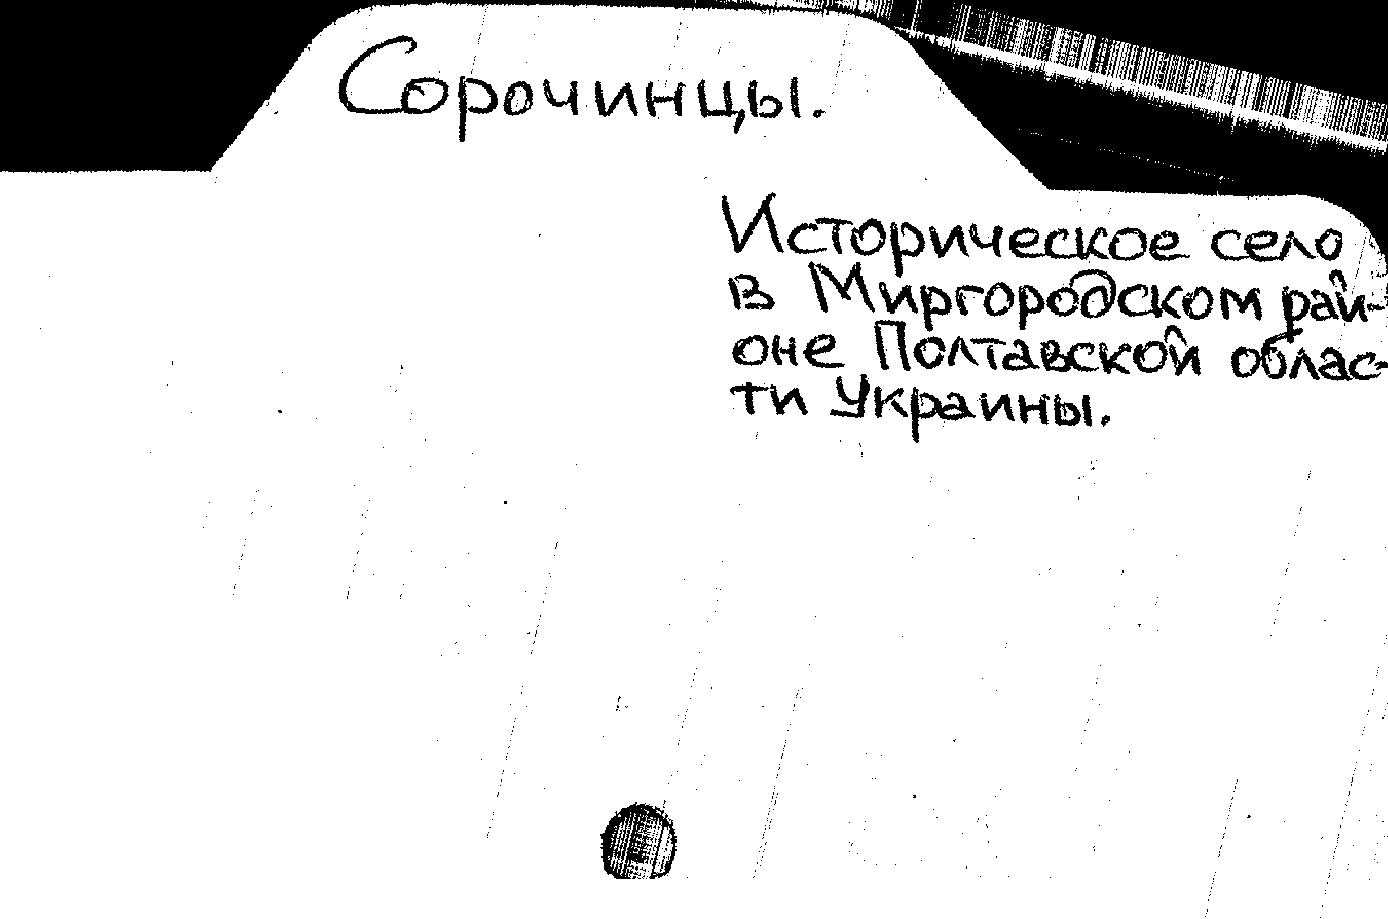 Сорочинцы.
Историческое село
в Миргородском рай-
оне Полтавской облас-
ти Украины.